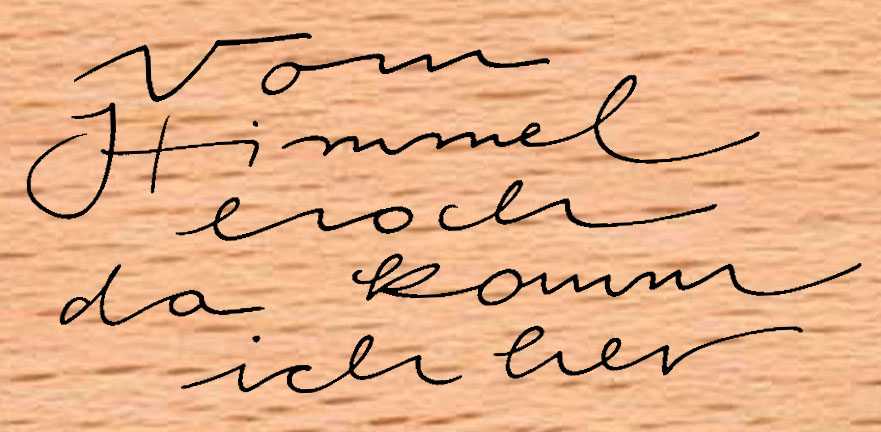 Vom
Himmel
hoch
da komm
ich her